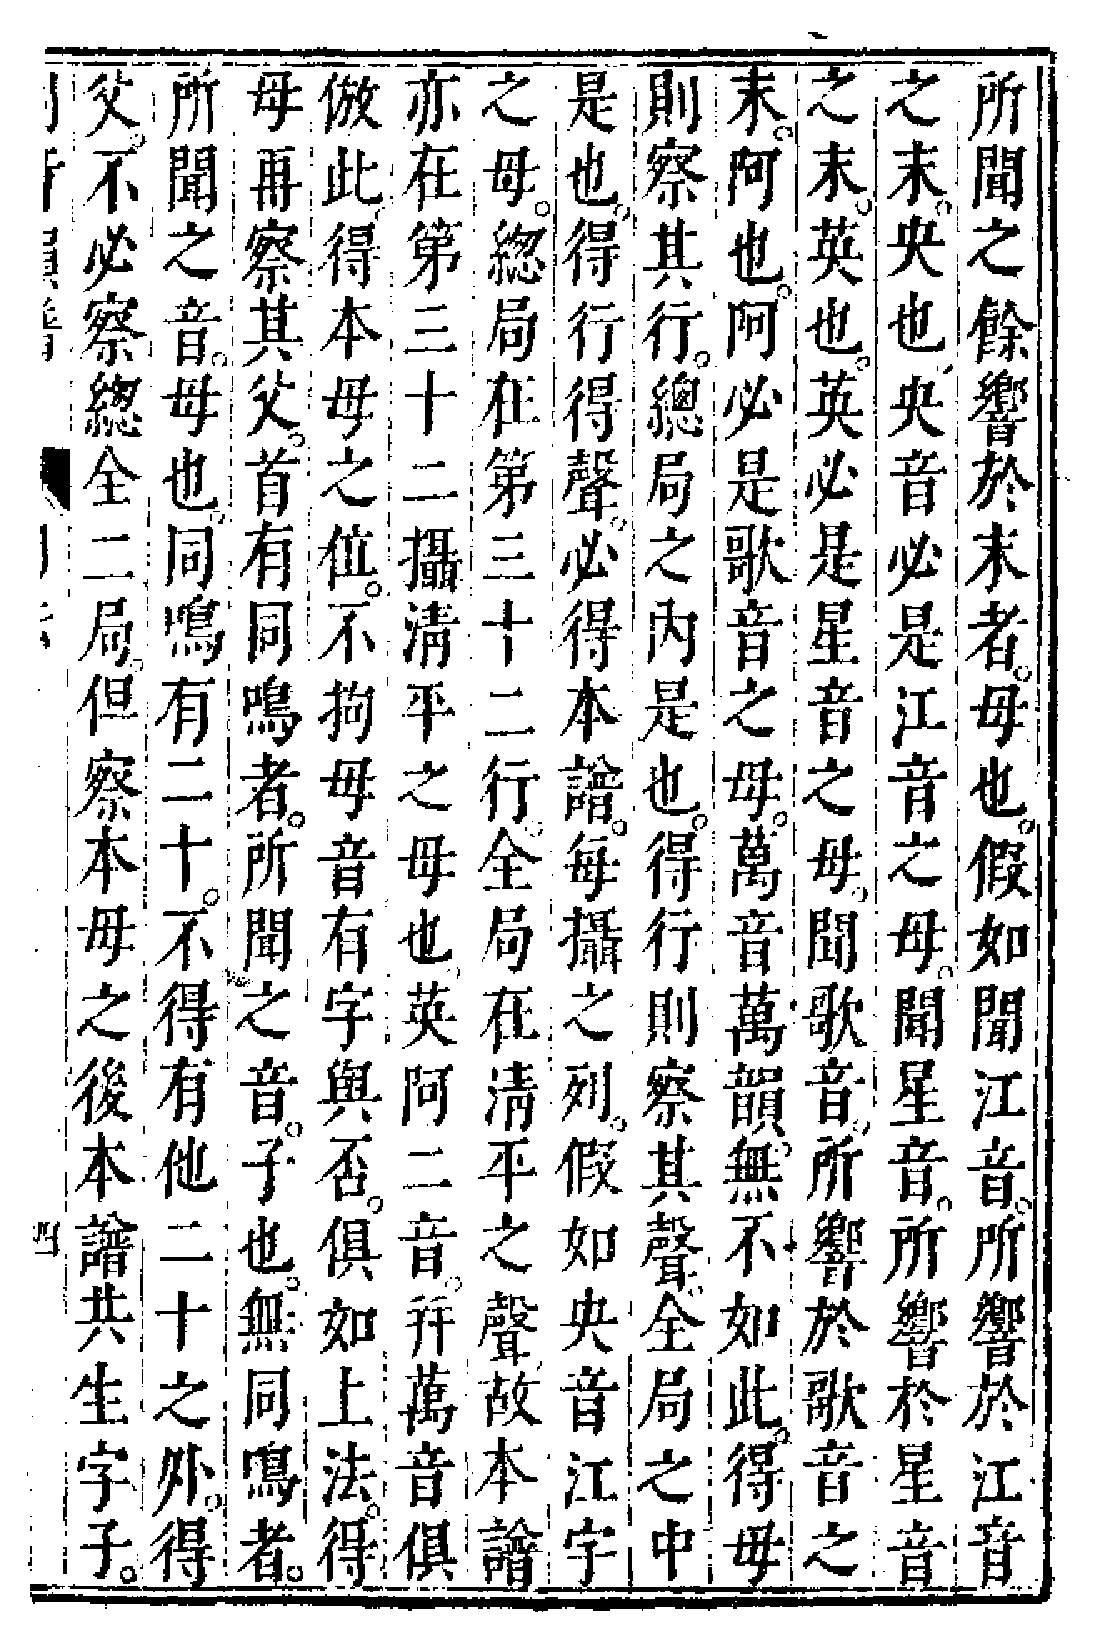 所聞之餘響於末者。母也。假如聞江音。所響於江音
之末。央也。央音必是江音之母。聞星音。所響於星音
之末。英也。英必是星音之母。聞歌音。所響於歌音之
末。阿也。阿必是歌音之母。萬音萬韻。無不如此。得母
則察其行。總局之內是也。得行則察其聲。全局之中
是也。得行得聲。必得本譜。每攝之列。假如央音江字
之母。總局在第三十二行。全局在清平之聲。故本譜
亦在第三十二攝清平之母也。英阿二音。并萬音俱
倣此。得本母之位。不拘母音有字與否。俱如上法。得
母再察其父。首有同鳴者。所聞之音。子也。無同鳴者。
所聞之音。母也。同鳴有二十。不得有他二十之外。得
父。不必察總全二局。但察本母之後本譜共生字子。
四